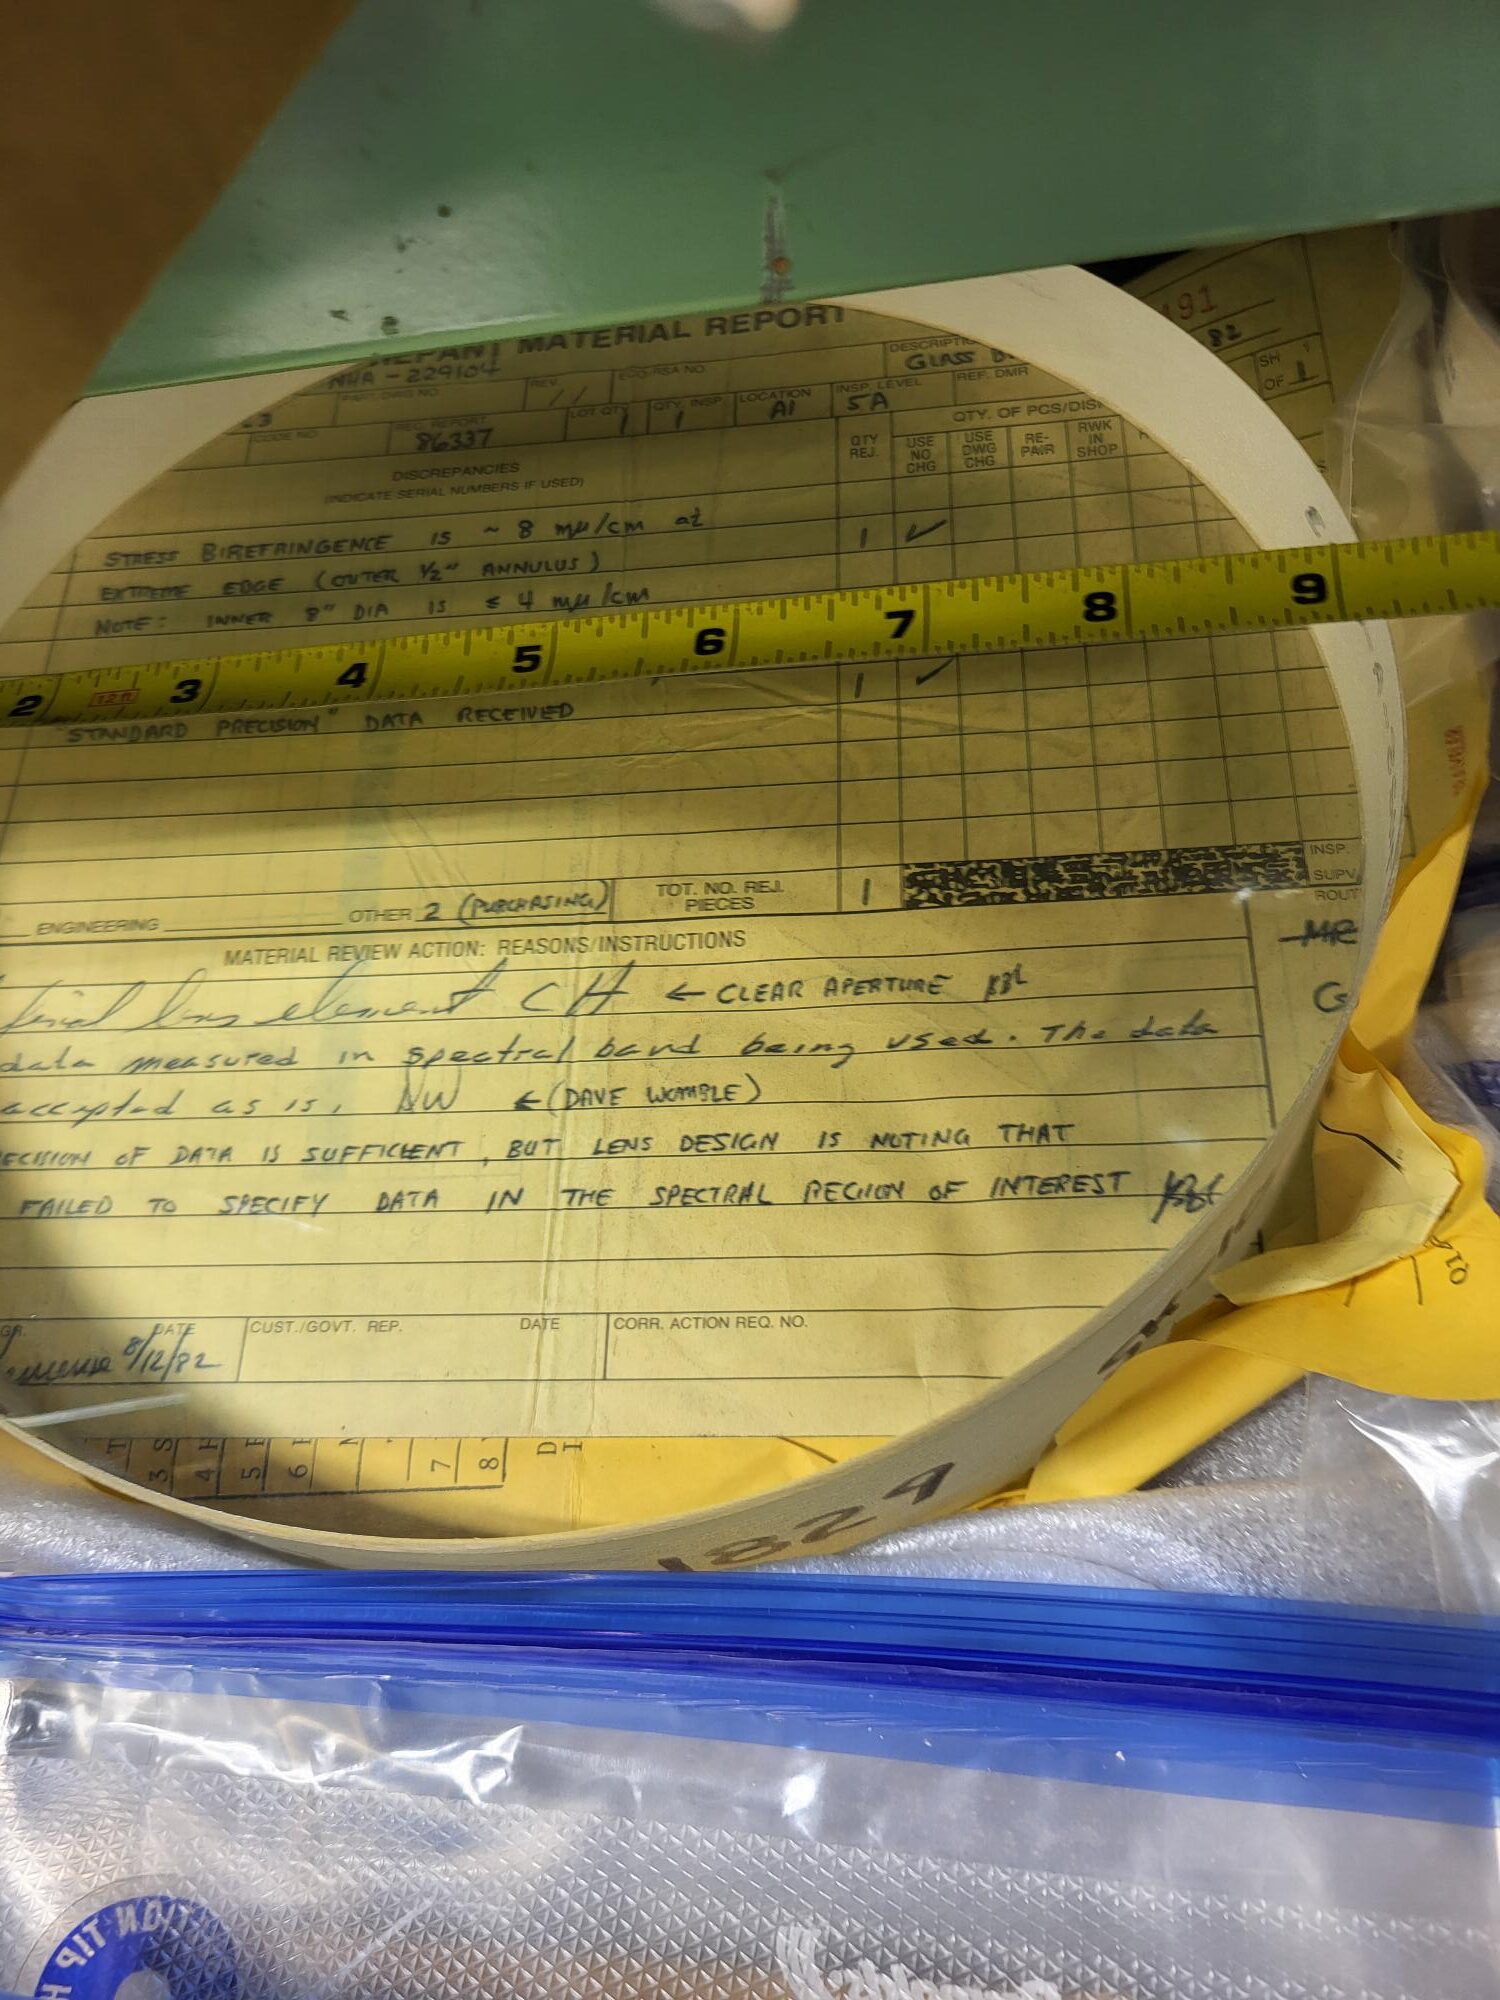 MATERIAL REPORT
191
NHA - 229104
REV.
GLASS
82
SH
OF 1
PART/DWG NO.
REF. DMR
CODE NO
REC. REPORT
86337
LOT QTY
1
QTY. INSP.
1
LOCATION
A1
INSP. LEVEL
5A
QTY. OF PCS/DIS
DISCREPANCIES
(INDICATE SERIAL NUMBERS IF USED)
QTY REJ.
USE NO CHG
USE DWG CHG
RE-PAIR
RWK IN SHOP
STRESS BIREFRINGENCE IS ~ 8 mμ/cm at
1 ✓
EXTREME EDGE (OUTER 1/2" ANNULUS)
NOTE: INNER 8" DIA IS ≤ 4 mμ/cm
2 12ft 3 4 5 6 7 8 9
1 ✓
"STANDARD PRECISION" DATA RECEIVED
INSP.
SUPV
ROUT
ENGINEERING
OTHER 2 (PURCHASING)
TOT. NO. REJ. PIECES
1
MR
MATERIAL REVIEW ACTION: REASONS/INSTRUCTIONS
lens element CH ← CLEAR APERTURE
data measured in spectral band being used. The data
accepted as is. DW ← (DAVE WOMBLE)
OF DATA IS SUFFICIENT, BUT LENS DESIGN IS NOTING THAT
FAILED TO SPECIFY DATA IN THE SPECTRAL REGION OF INTEREST
DATE
8/12/82
CUST./GOVT. REP.
DATE
CORR. ACTION REQ. NO.
3 S
4
5
6
7
8
1829